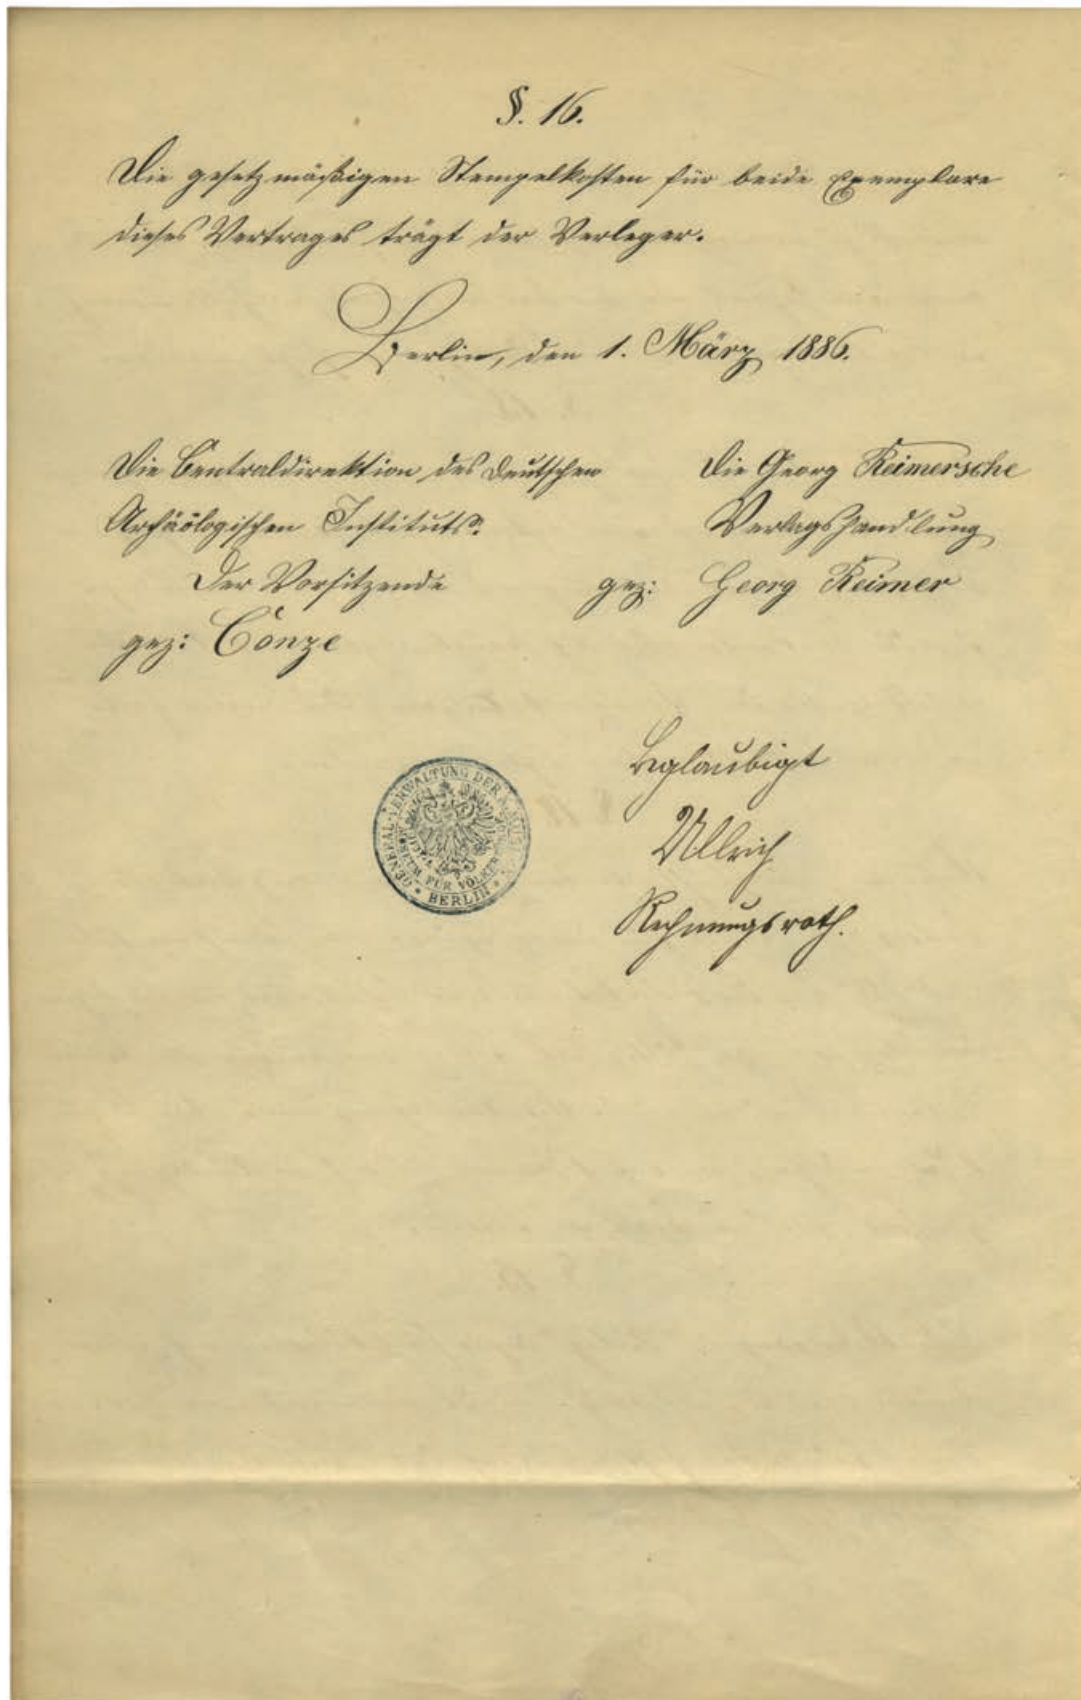 §. 16.
Die gesetzmäßigen Stempelkosten für beide Exemplare
dieses Vertrages trägt der Verleger.
Berlin, den 1. März 1886.
Die Centraldirektion des Deutschen
Archäologischen Instituts.
Der Vorsitzende
gez: Conze
Die Georg Reimersche
Verlagshandlung
gez: Georg Reimer
Beglaubigt
Ullrich
Rechnungsrath.
GENERAL-VERWALTUNG DER K. MUSEEN
MUSEUM FÜR VÖLKERKUNDE
* BERLIN *